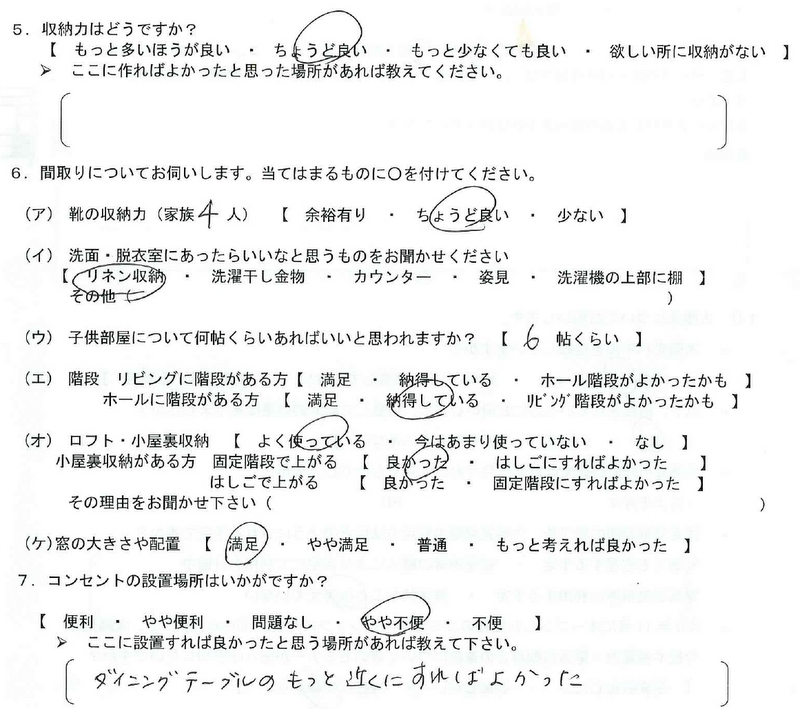 5．収納力はどうですか？
【　もっと多いほうが良い　・　ちょうど良い　・　もっと少なくても良い　・　欲しい所に収納がない　】
➢　ここに作ればよかったと思った場所があれば教えてください。
6．間取りについてお伺いします。当てはまるものに〇を付けてください。
（ア）　靴の収納力（家族 4 人）　【　余裕有り　・　ちょうど良い　・　少ない　】
（イ）　洗面・脱衣室にあったらいいなと思うものをお聞かせください
【　リネン収納　・　洗濯干し金物　・　カウンター　・　姿見　・　洗濯機の上部に棚　】
その他（　　　）
（ウ）　子供部屋について何帖くらいあればいいと思われますか？　【　6　帖くらい　】
（エ）　階段　リビングに階段がある方【　満足　・　納得している　・　ホール階段がよかったかも　】
ホールに階段がある方　【　満足　・　納得している　・　ﾘﾋﾞﾝｸﾞ階段がよかったかも　】
（オ）　ロフト・小屋裏収納　【　よく使っている　・　今はあまり使っていない　・　なし　】
小屋裏収納がある方　固定階段で上がる　【　良かった　・　はしごにすればよかった　】
はしごで上がる　【　良かった　・　固定階段にすればよかった　】
その理由をお聞かせ下さい（　　　）
（ケ）窓の大きさや配置　【　満足　・　やや満足　・　普通　・　もっと考えれば良かった　】
7．コンセントの設置場所はいかがですか？
【　便利　・　やや便利　・　問題なし　・　やや不便　・　不便　】
➢　ここに設置すれば良かったと思う場所があれば教えて下さい。
ダイニングテーブルのもっと近くにすればよかった